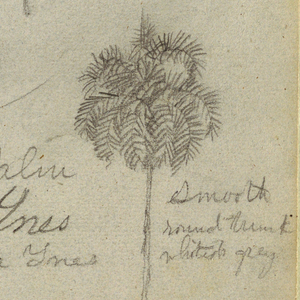 Palm
Ynes
Ynes
Smooth
round trunk
whitish grey